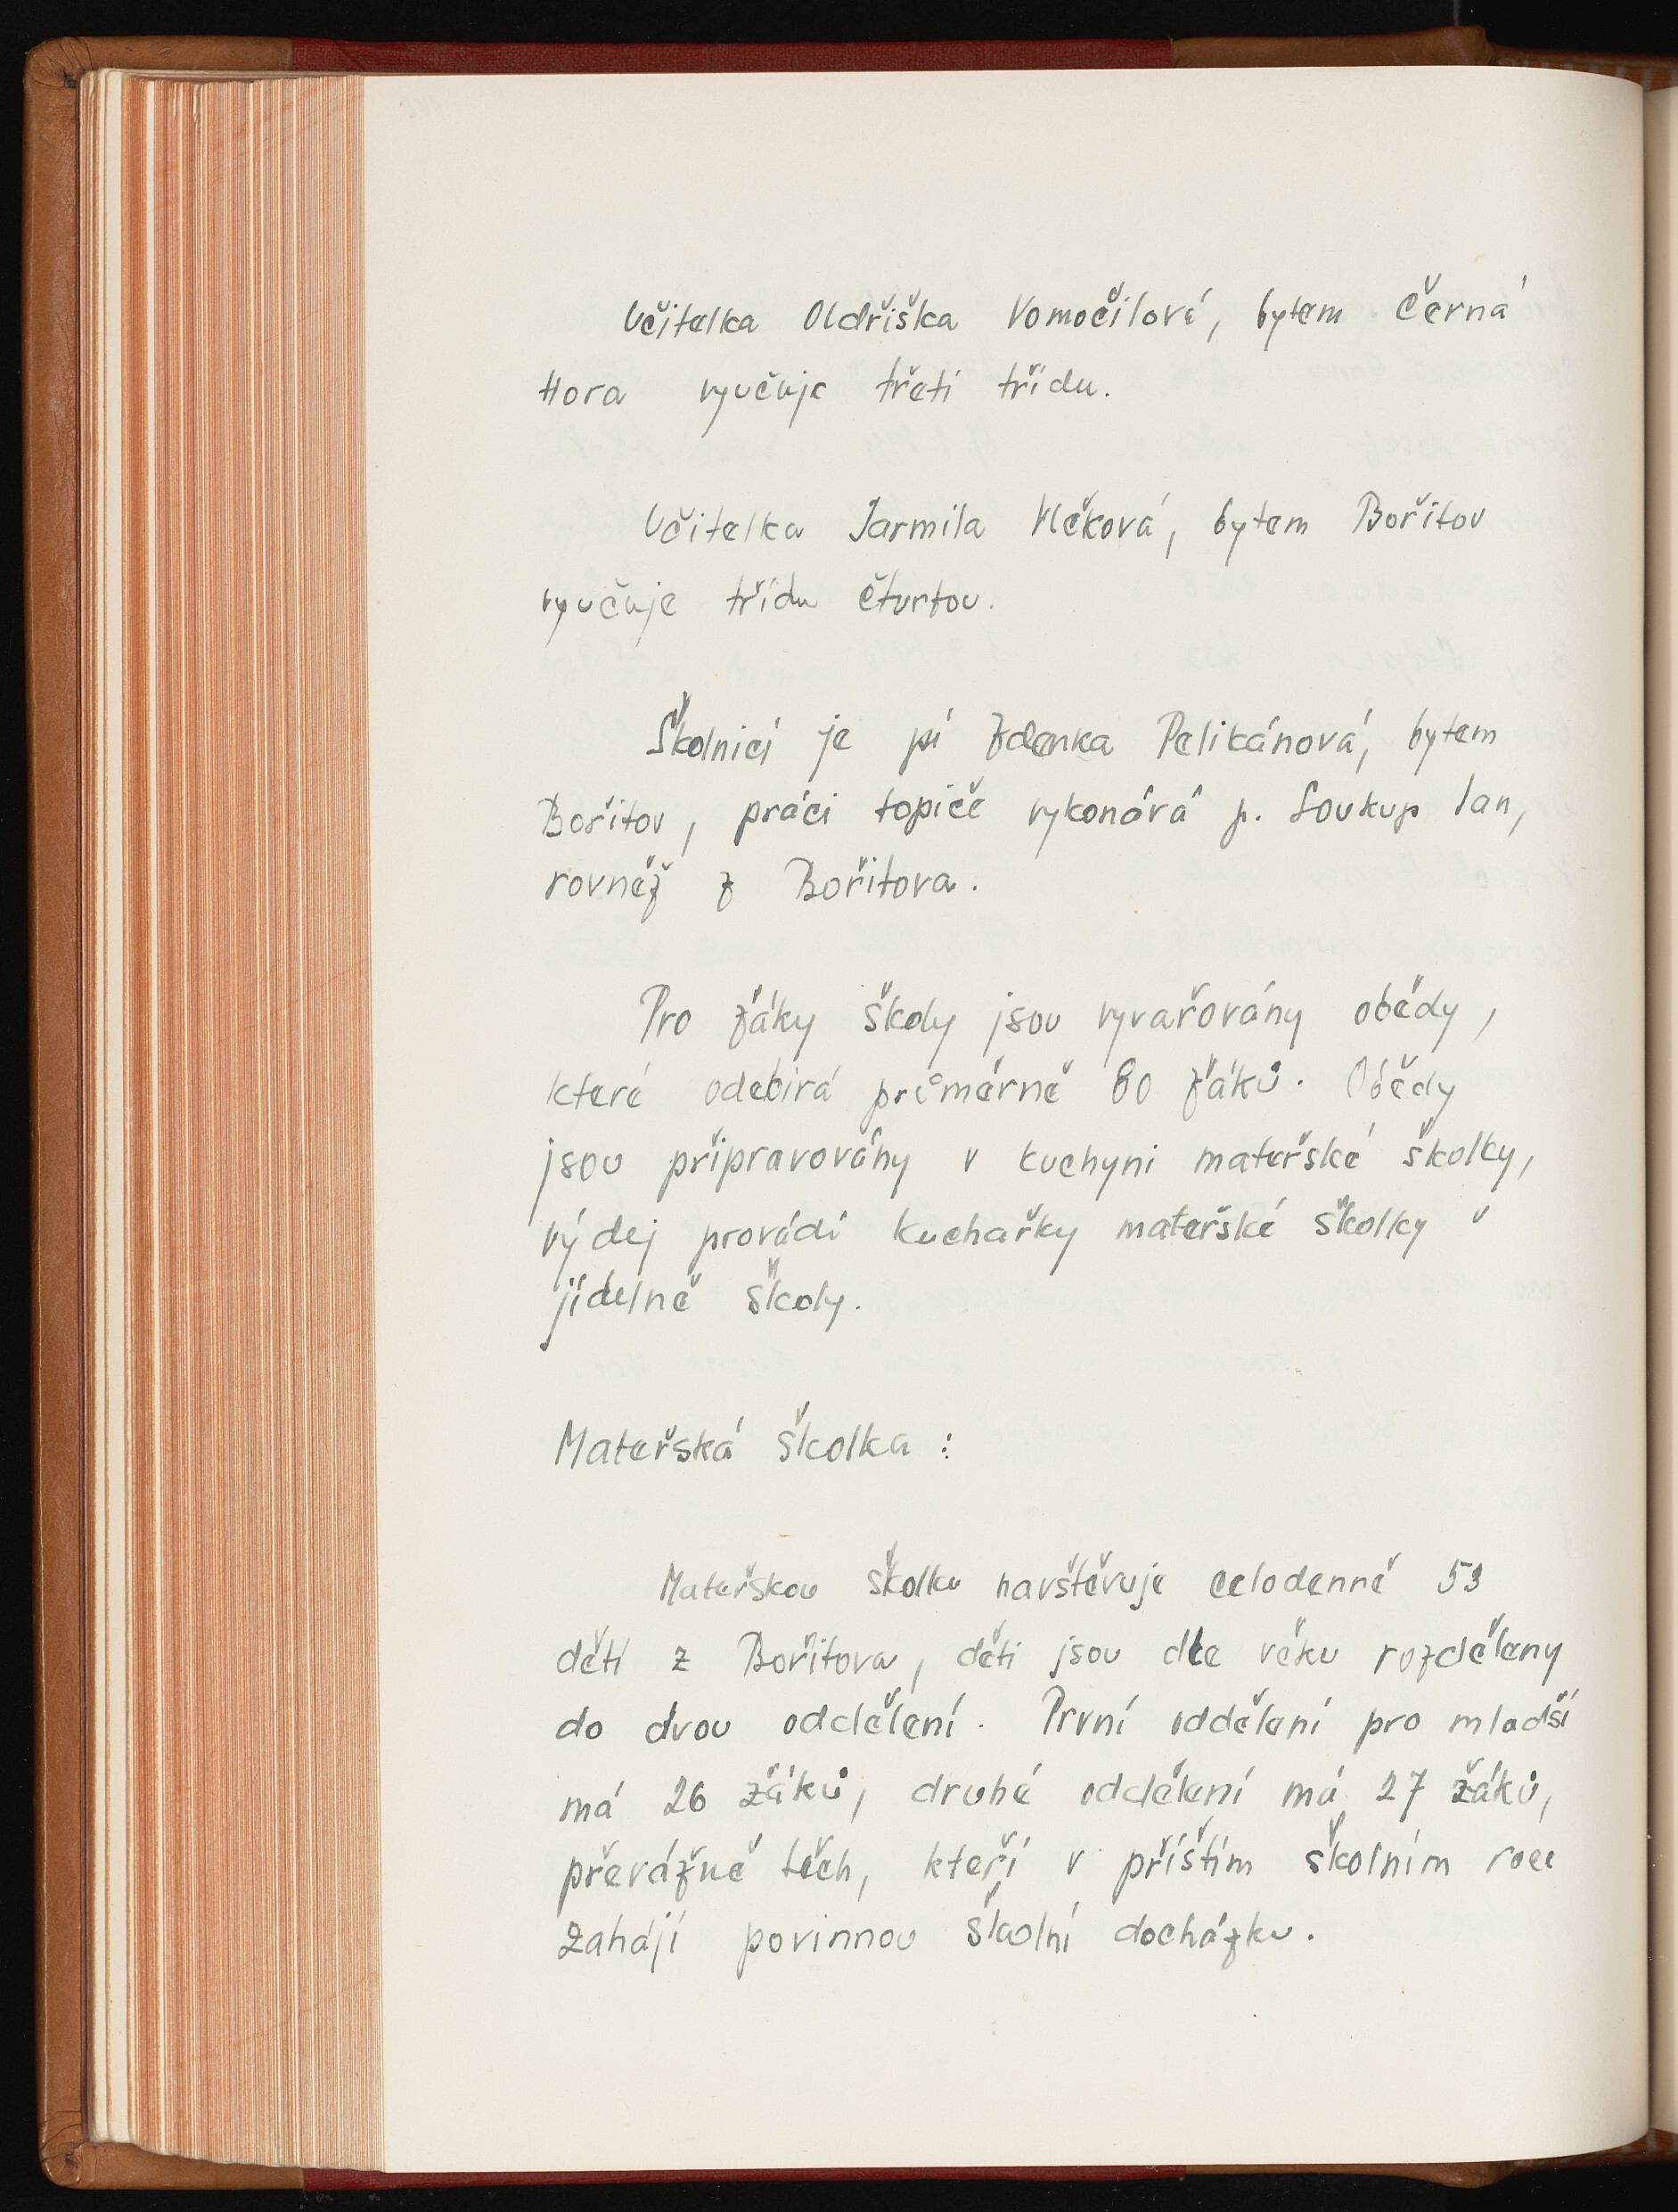 Učitelka Oldřiška Vomočilová, bytem Černá
Hora vyučuje třetí třídu.
Učitelka Jarmila Vlčková, bytem Bořitov
vyučuje třídu čtvrtou.
Školnicí je pí Zdenka Pelikánová, bytem
Bořitov, práci topiče vykonává p. Soukup Jan,
rovněž z Bořitova.
Pro žáky školy jsou vyvařovány obědy,
které odebírá průměrně 80 žáků. Obědy
jsou připravovány v kuchyni mateřské školky,
výdej provádí kuchařky mateřské školky v
jídelně školy.
Mateřská školka :
Mateřskou školku navštěvuje celodenně 53
dětí z Bořitova, děti jsou dle věku rozděleny
do dvou oddělení. První oddělení pro mladší
má 26 žáků, druhé oddělení má 27 žáků,
převážně těch, kteří v příštím školním roce
zahájí povinnou školní docházku.